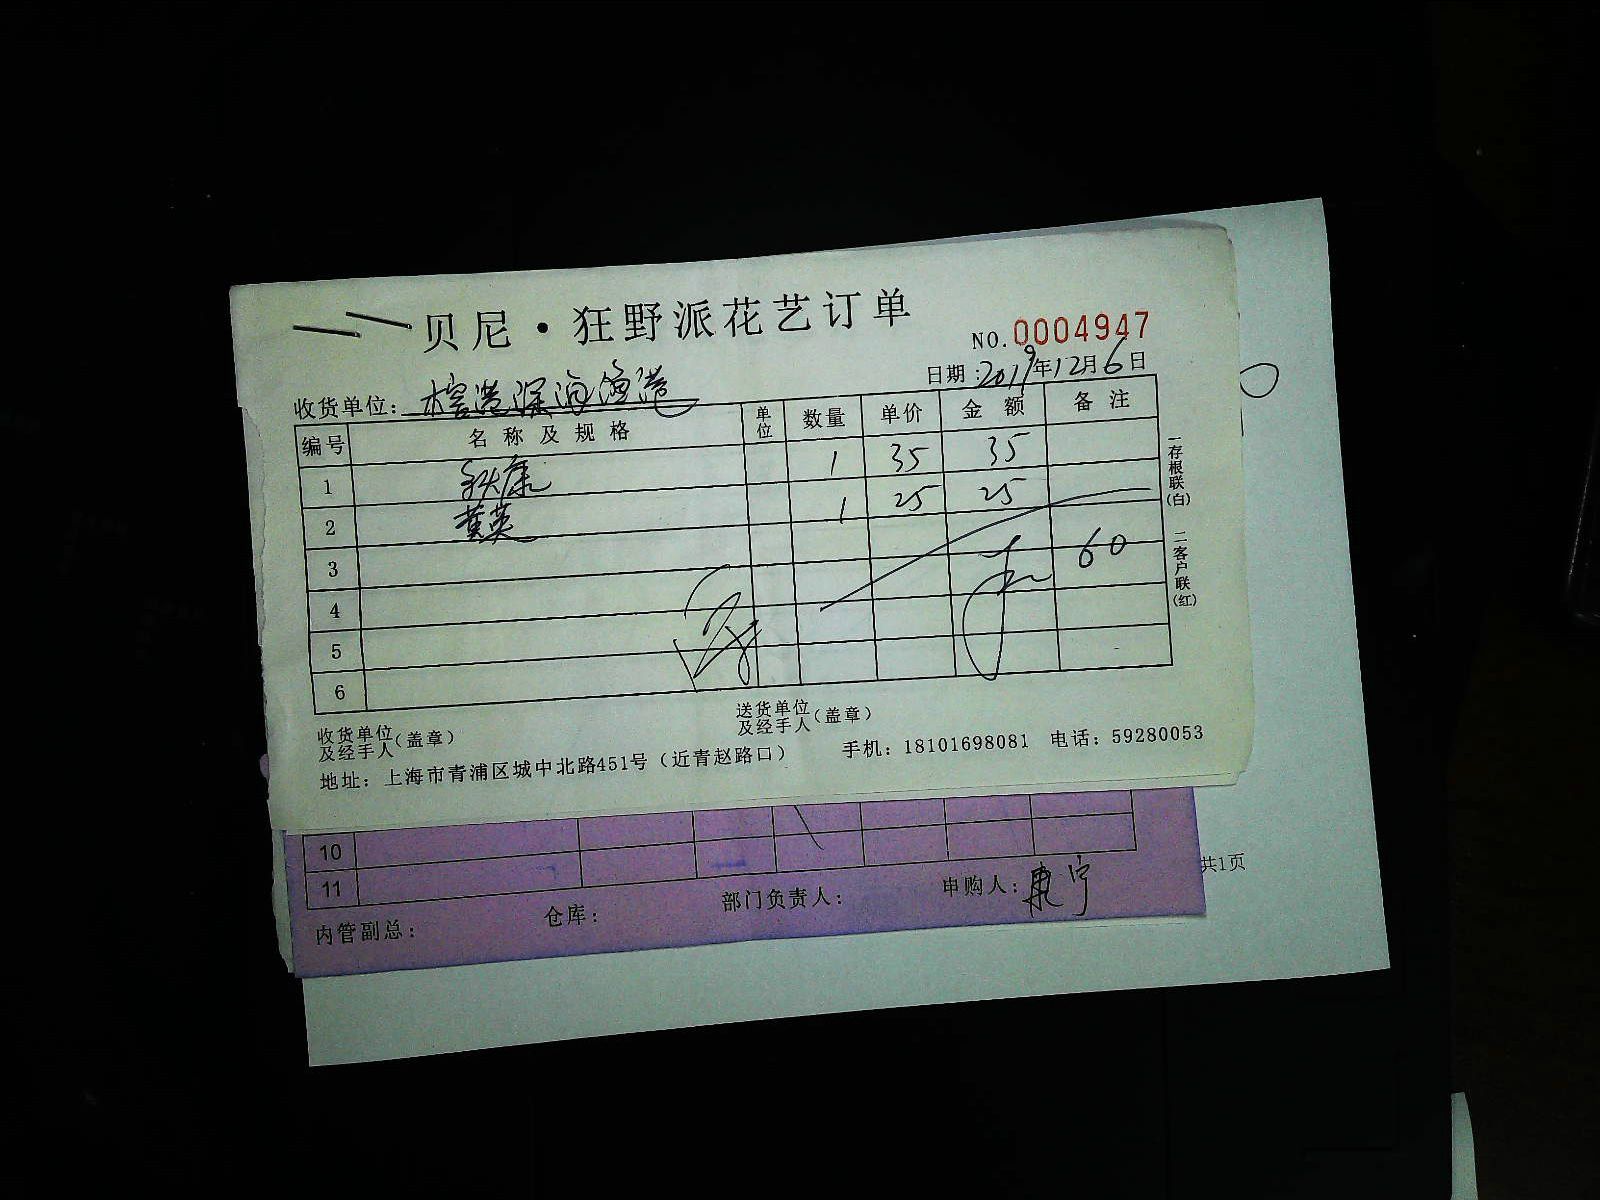 贝尼·狂野派花艺订单
NO.0004947
日期：2019年12月6日
收货单位：榕港深海渔港
编号 名称及规格 单位 数量 单价 金额 备注
1 1 35 35
2 黄英 1 25 25
3 60
4
5
6
一存根联(白) 二客户联(红)
收货单位及经手人(盖章)
送货单位及经手人(盖章)
地址：上海市青浦区城中北路451号（近青赵路口） 手机：18101698081 电话：59280053
10
11
内管副总： 仓库： 部门负责人： 申购人：
共1页